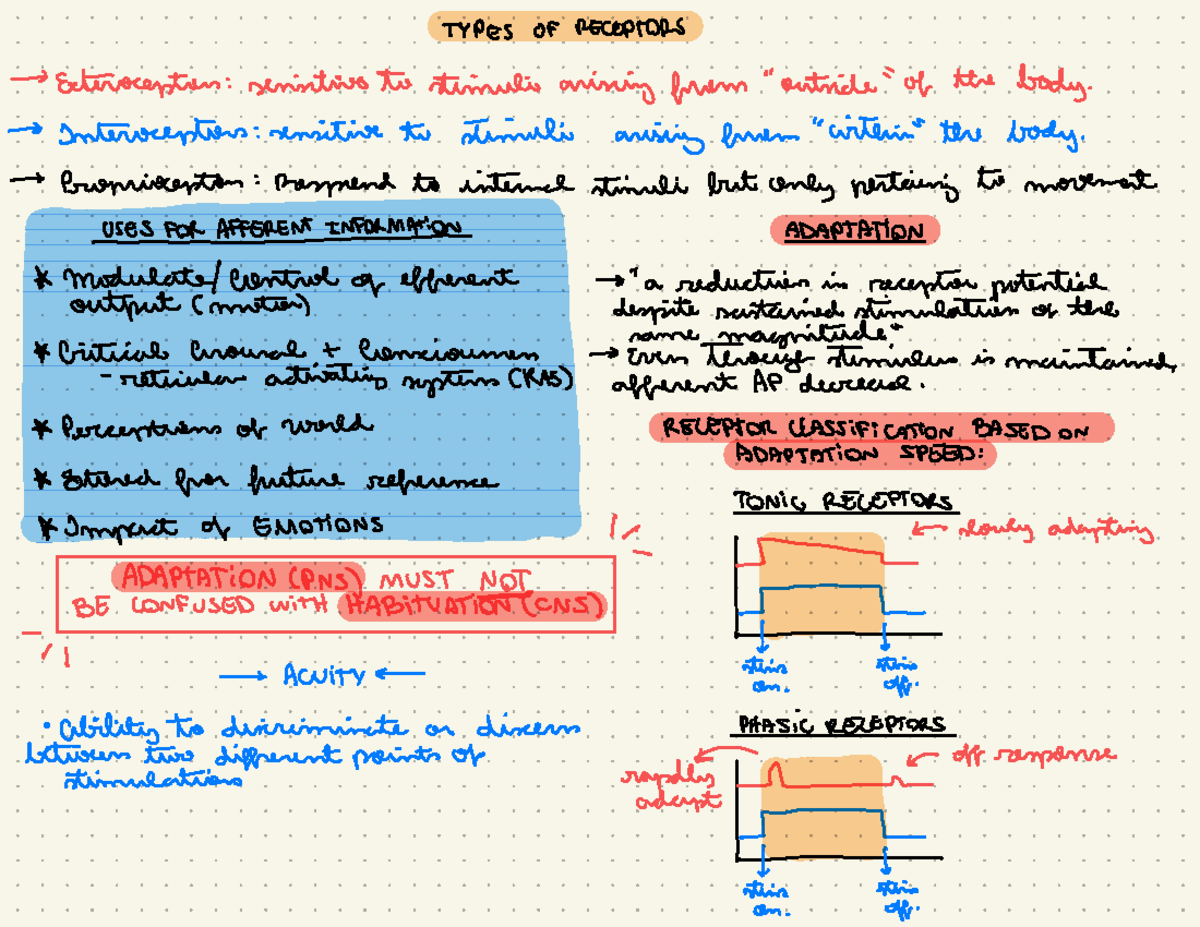 TYPES OF RECEPTORS
→ Exteroceptors: sensitive to stimuli arising from "outside" of the body.
→ Interoceptors: sensitive to stimuli arising from "within" the body.
→ Proprioceptors: Respond to internal stimuli but only pertaining to movement
USES FOR AFFERENT INFORMATION
* Modulate/Control of efferent
output (motor)
* Critical Arousal + Consciousness
- reticular activating system (RAS)
* Perceptions of world
* Stored for future reference
* Impact of EMOTIONS
ADAPTATION (PNS) MUST NOT
BE CONFUSED WITH HABITUATION (CNS)
→ ACUITY ←
• Ability to discriminate or discern
between two different points of
stimulations
ADAPTATION
→ "a reduction in receptor potential
despite sustained stimulation of the
same magnitude"
→ Even though stimulus is maintained,
afferent AP decrease.
RECEPTOR CLASSIFICATION BASED ON
ADAPTATION SPEED:
TONIC RECEPTORS
← slowly adapting
stim
on.
stim
off.
PHASIC RECEPTORS
rapidly
adapt
← off response
stim
on.
stim
off.